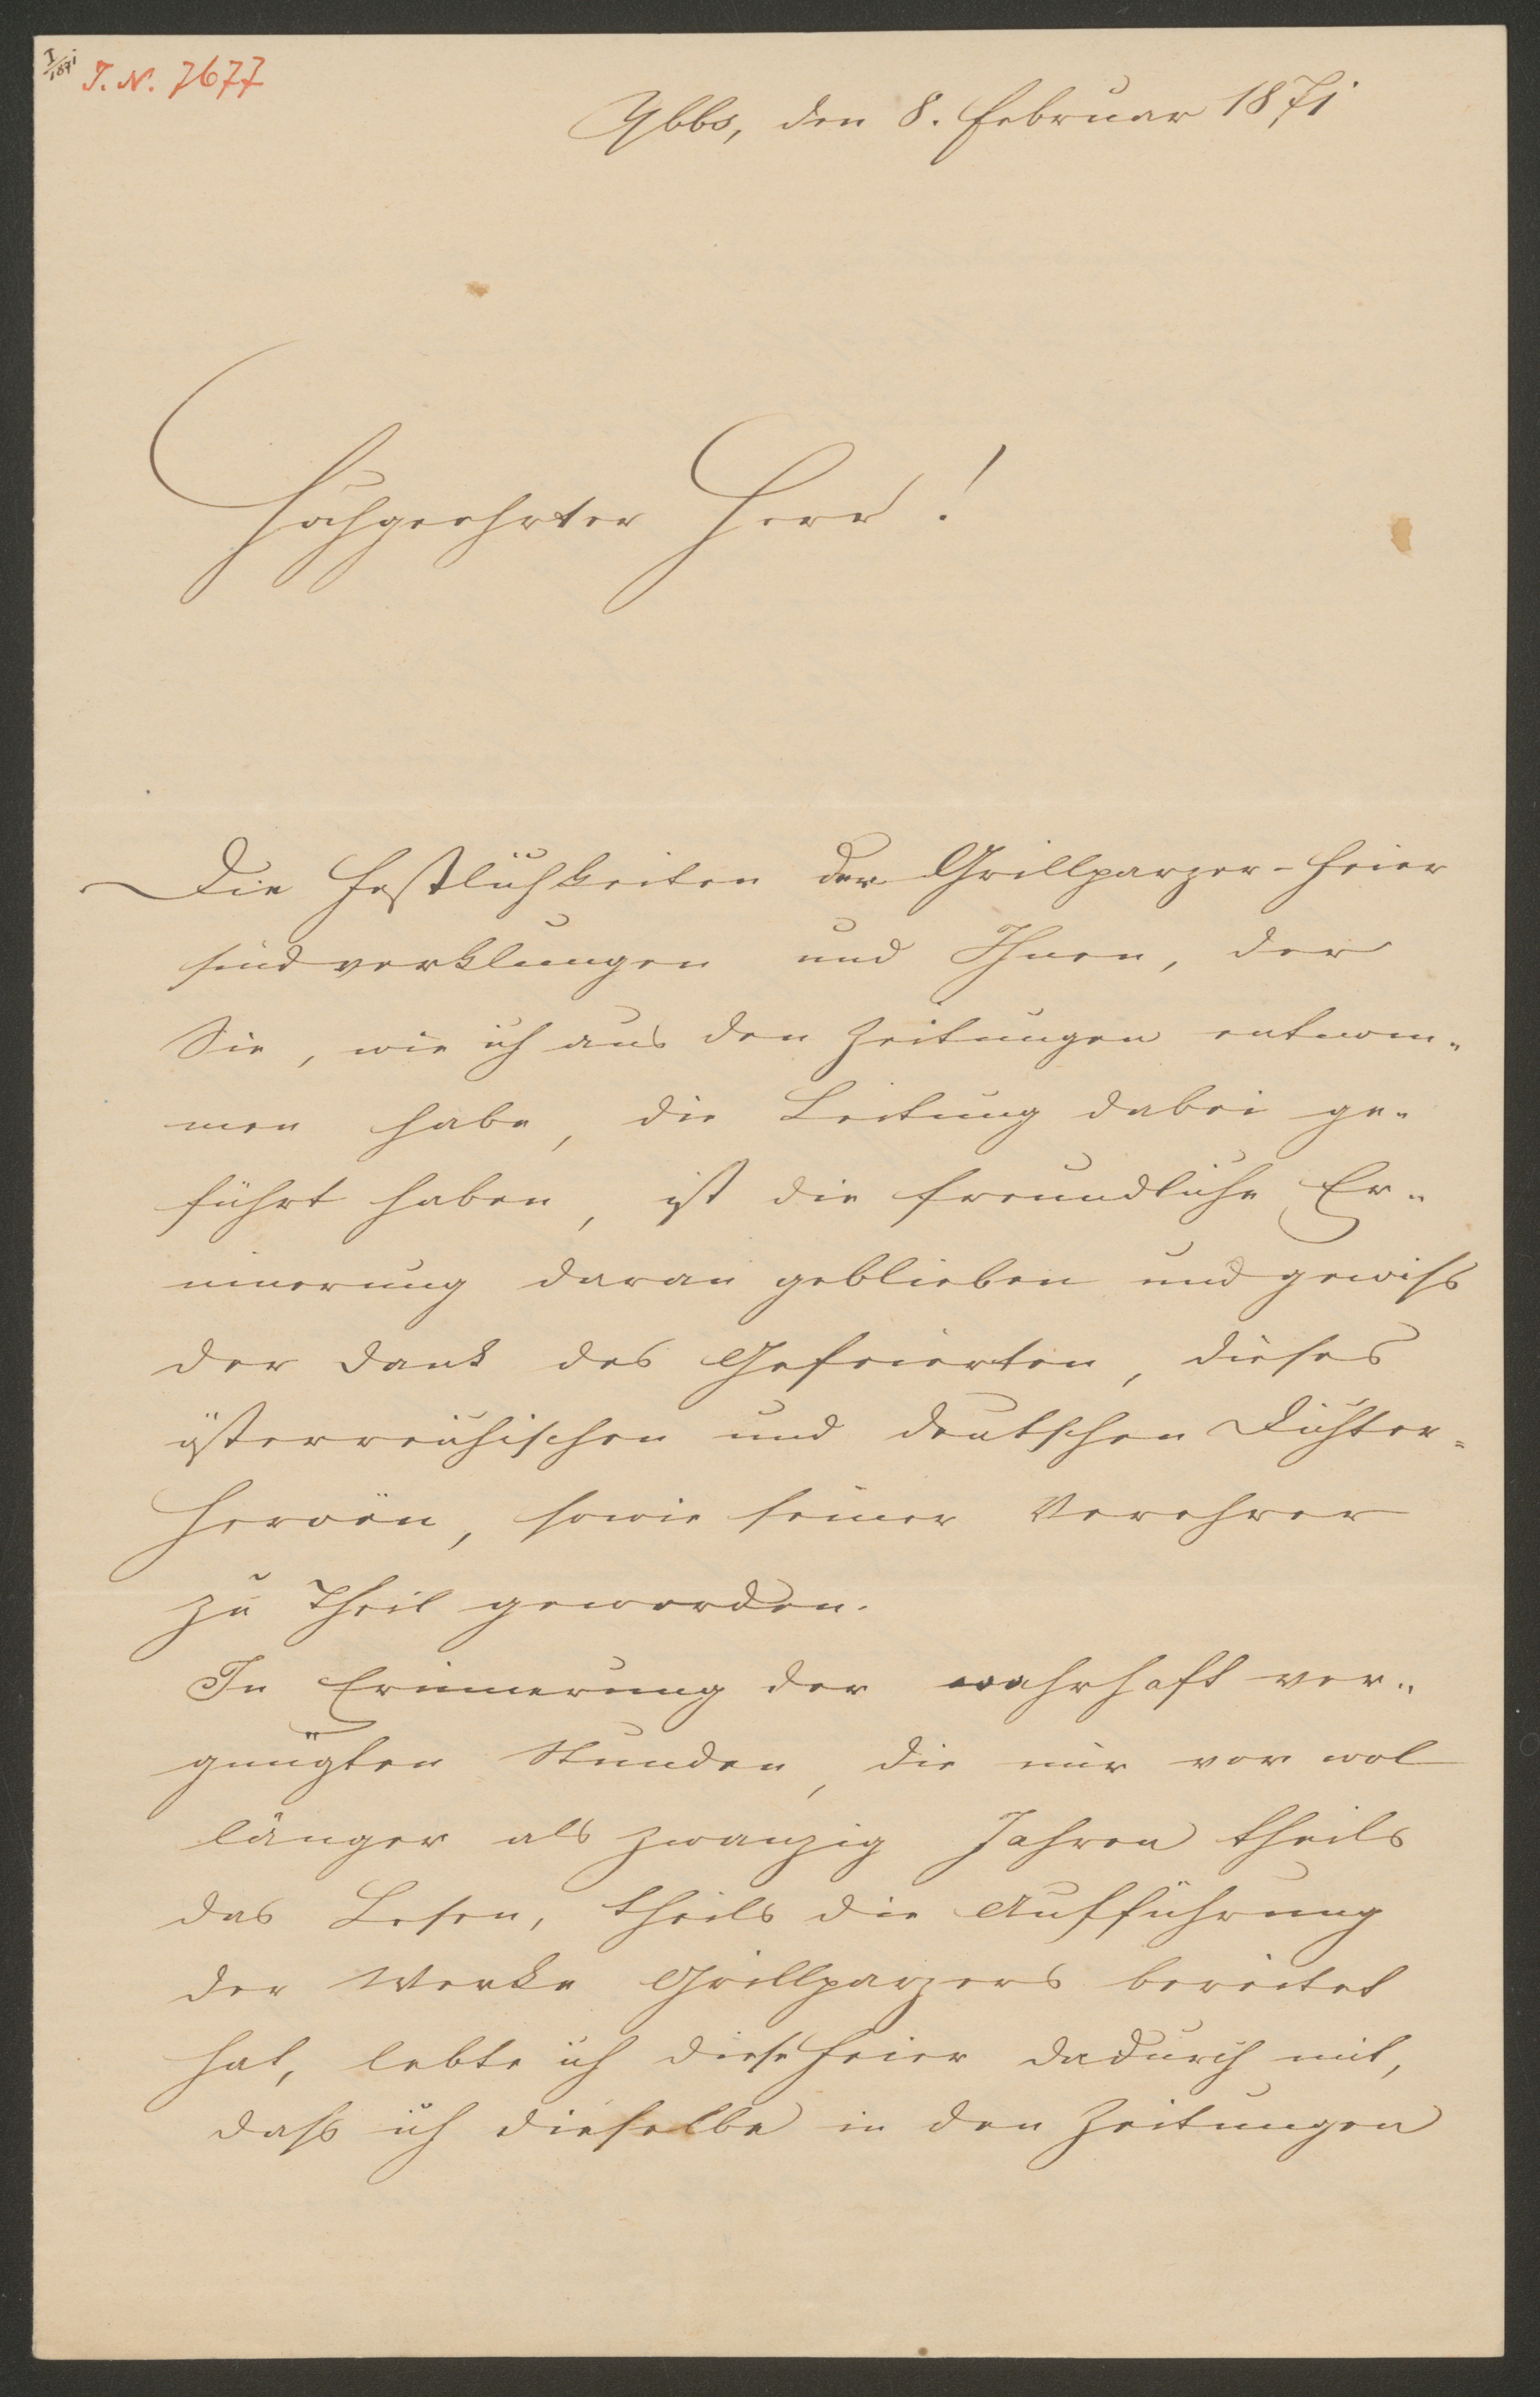 I/1871 I. N. 7677
Ybbs, den 8. Februar 1871
Hochgeehrter Herr!
Die Festlichkeiten der Grillparzer-Feier
sind verklungen und Ihnen, der
Sie, wie ich aus den Zeitungen entnom-
men habe, die Leitung dabei ge-
führt haben, ist die freundliche Er-
innerung daran geblieben und gewiß
der Dank des Gefeierten, dieses
österreichischen und deutschen Dichter-
Heroën, sowie seiner Verehrer
zu Theil geworden.
In Erinnerung der wahrhaft ver-
gnügten Stunden, die mir vor wol
länger als zwanzig Jahren theils
das Lesen, theils die Aufführung
der Werke Grillparzers bereitet
hat, lebte ich diese Feier dadurch mit,
daß ich dieselbe in den Zeitungen